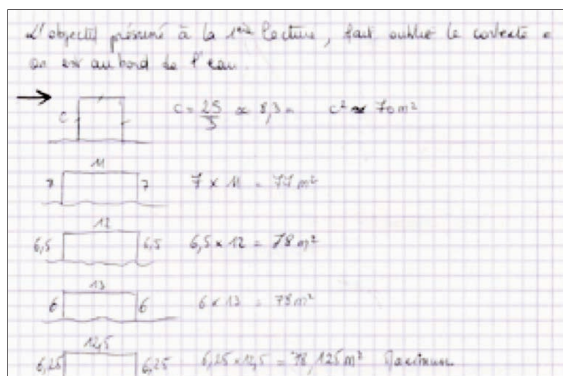 L'objectif présumé à la 1ère lecture, fait oublier le contexte
on est au bord de l'eau.
C c = 25/3 ≈ 8,3 m c² ≈ 70 m²
11
7 7 7 × 11 = 77 m²
12
6,5 6,5 6,5 × 12 = 78 m²
13
6 6 6 × 13 = 78 m²
12,5
6,25 6,25 6,25 × 12,5 = 78,125 m² Maximum